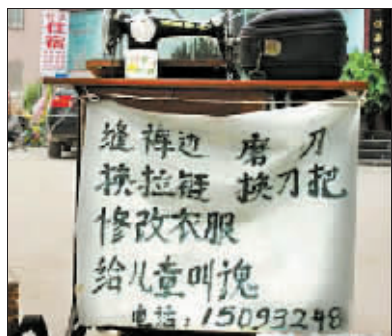 住宿
缝裤边 磨刀
换拉链 换刀把
修改衣服
给儿童叫魂
电话：15093248